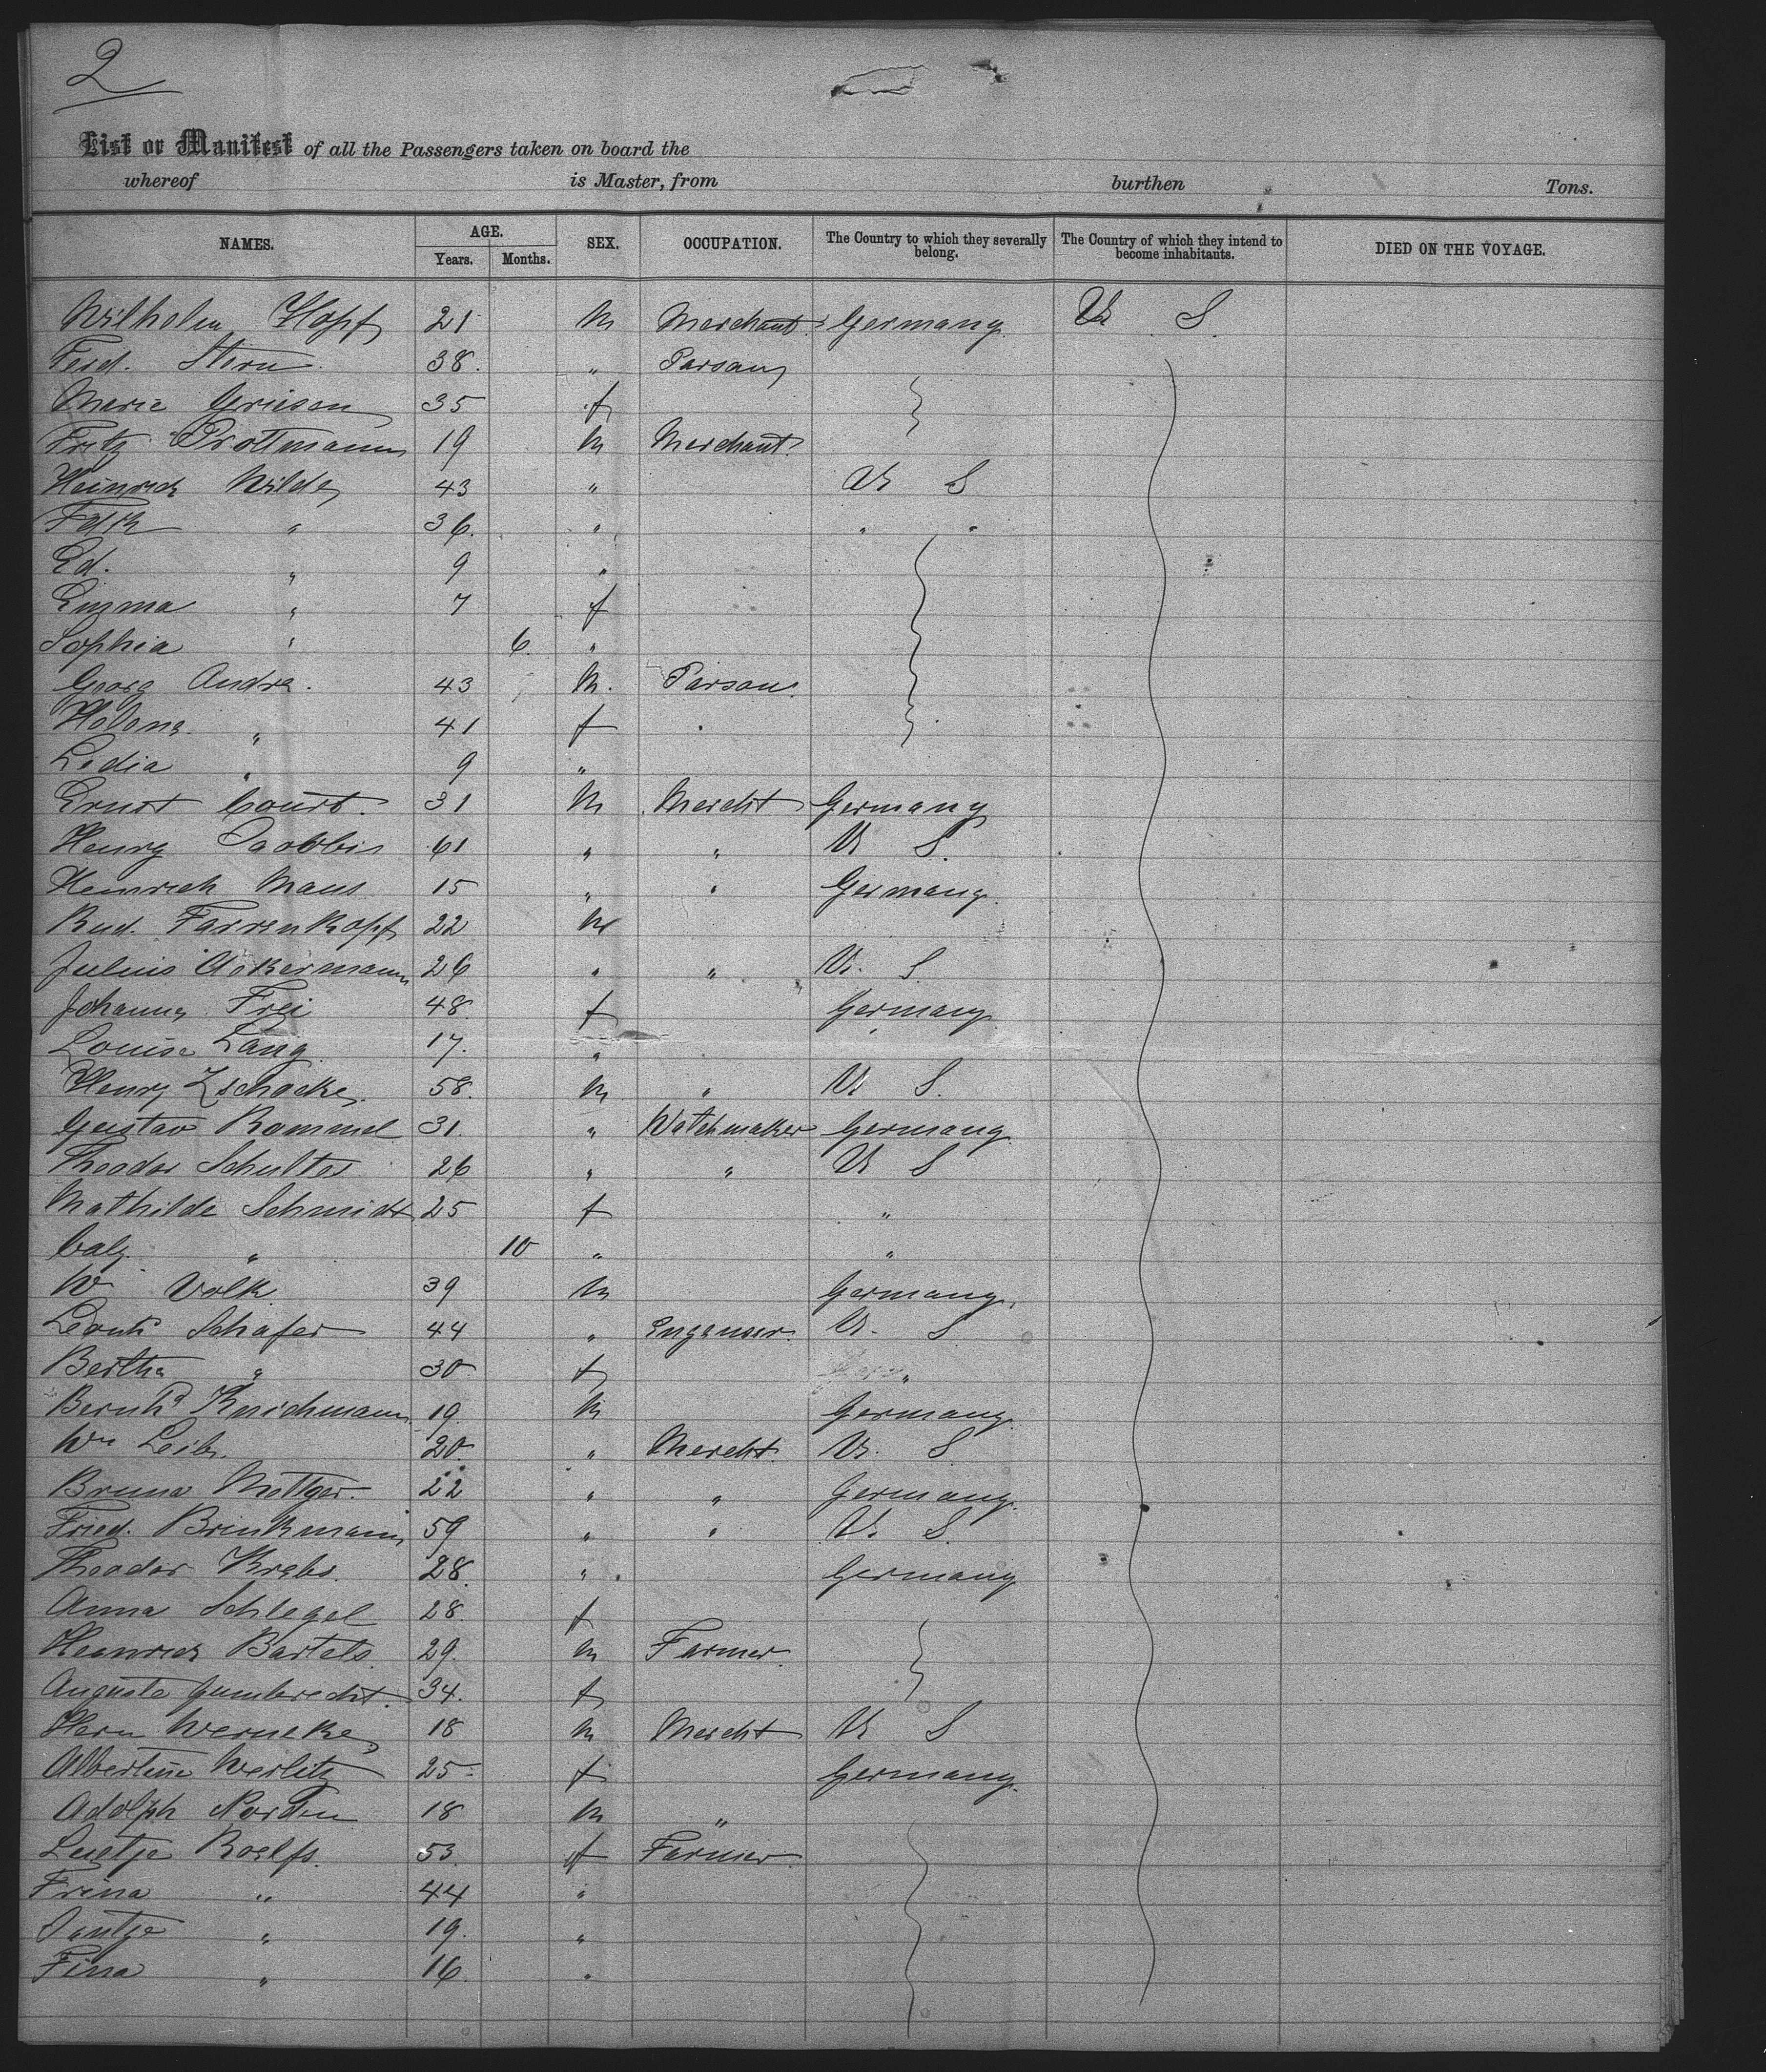 2
List or Manifest of all the Passengers taken on board the
whereof is Master, from burthen Tons.
NAMES. AGE. SEX. OCCUPATION. The Country to which they severally belong. The Country of which they intend to become inhabitants. DIED ON THE VOYAGE.
Years. Months.
Wilhelm Hopf 21 m Merchant Germany U S
Ferd. Stern 38. " Parson
Marie Griesen 35 f
Fritz Trottmann 19 m Merchant
Heinrich Wilde 43 " U S
" 36. " " "
Ed. " 9 "
Emma " 7 f
Sophia " 6. "
Georg Andre. 43 M. Parson
Helene " 41 f "
Ledia " 9 "
Ernst Court. 31 m Mercht Germany
Henry 61 " " U S.
Heinrich Maus 15 " " Germany
Rud. Farrenkopf 22 m
Julius Ackermann 26 " " U. S
Johanna Frei 48 f Germany
Louise Lang 17. "
Henry Zschocke. 58. m " U S.
Gustav Rommel 31. " Watchmaker Germany
Theodor Schultes 26 " " U S
Mathilde Schmidt 25 f "
" 10 " "
W Volk 39 m Germany,
Schafer 44 " Engeneer. U. S
Bertha " 30 f "
Bernhd 19. m Germany.
Wm Leib. 20. " Mercht U. S.
Bruno Mottger. 22 " " Germany.
Fried. Brinkmann 59 " " U. S.
Theodor Krebs. 28. " Germany
Anna Schlegel 28. f
Heinrich Bartels 29. m Farmer
Auguste Gumbrecht. 34. f
Herm Werneke, 18 m Mercht U S
Albertine Werlitz 25 f Germany.
Adolph Norden 18 m "
Luetje Roelfs. 53. f Farmer
Frina " 44 "
Jantje " 19. "
Fina " 16. "